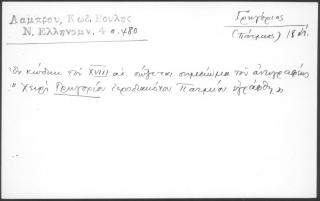 Λάμπρου, Κωδ. Βουλής
Ν. Ελληνομν. 4 σ. 480
Γρηγόριος
(Πάτμιος) 18 αἰ.
Ἐν κώδικι τοῦ XVIII αἰ. σώζεται σημείωμα τοῦ ἀντιγραφέως
"Χειρὶ Γρηγορίου ἱεροδιακόνου Πατμίου ἐγράφθη"